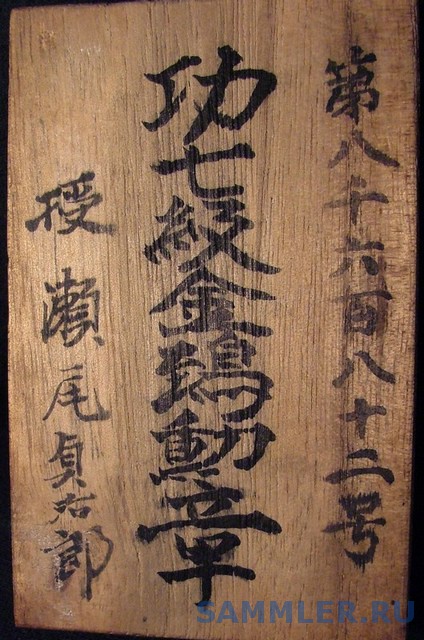 第八千六百八十二号
功七級金鵄勲章
授瀬尾貞治郎
SAMMLER.RU